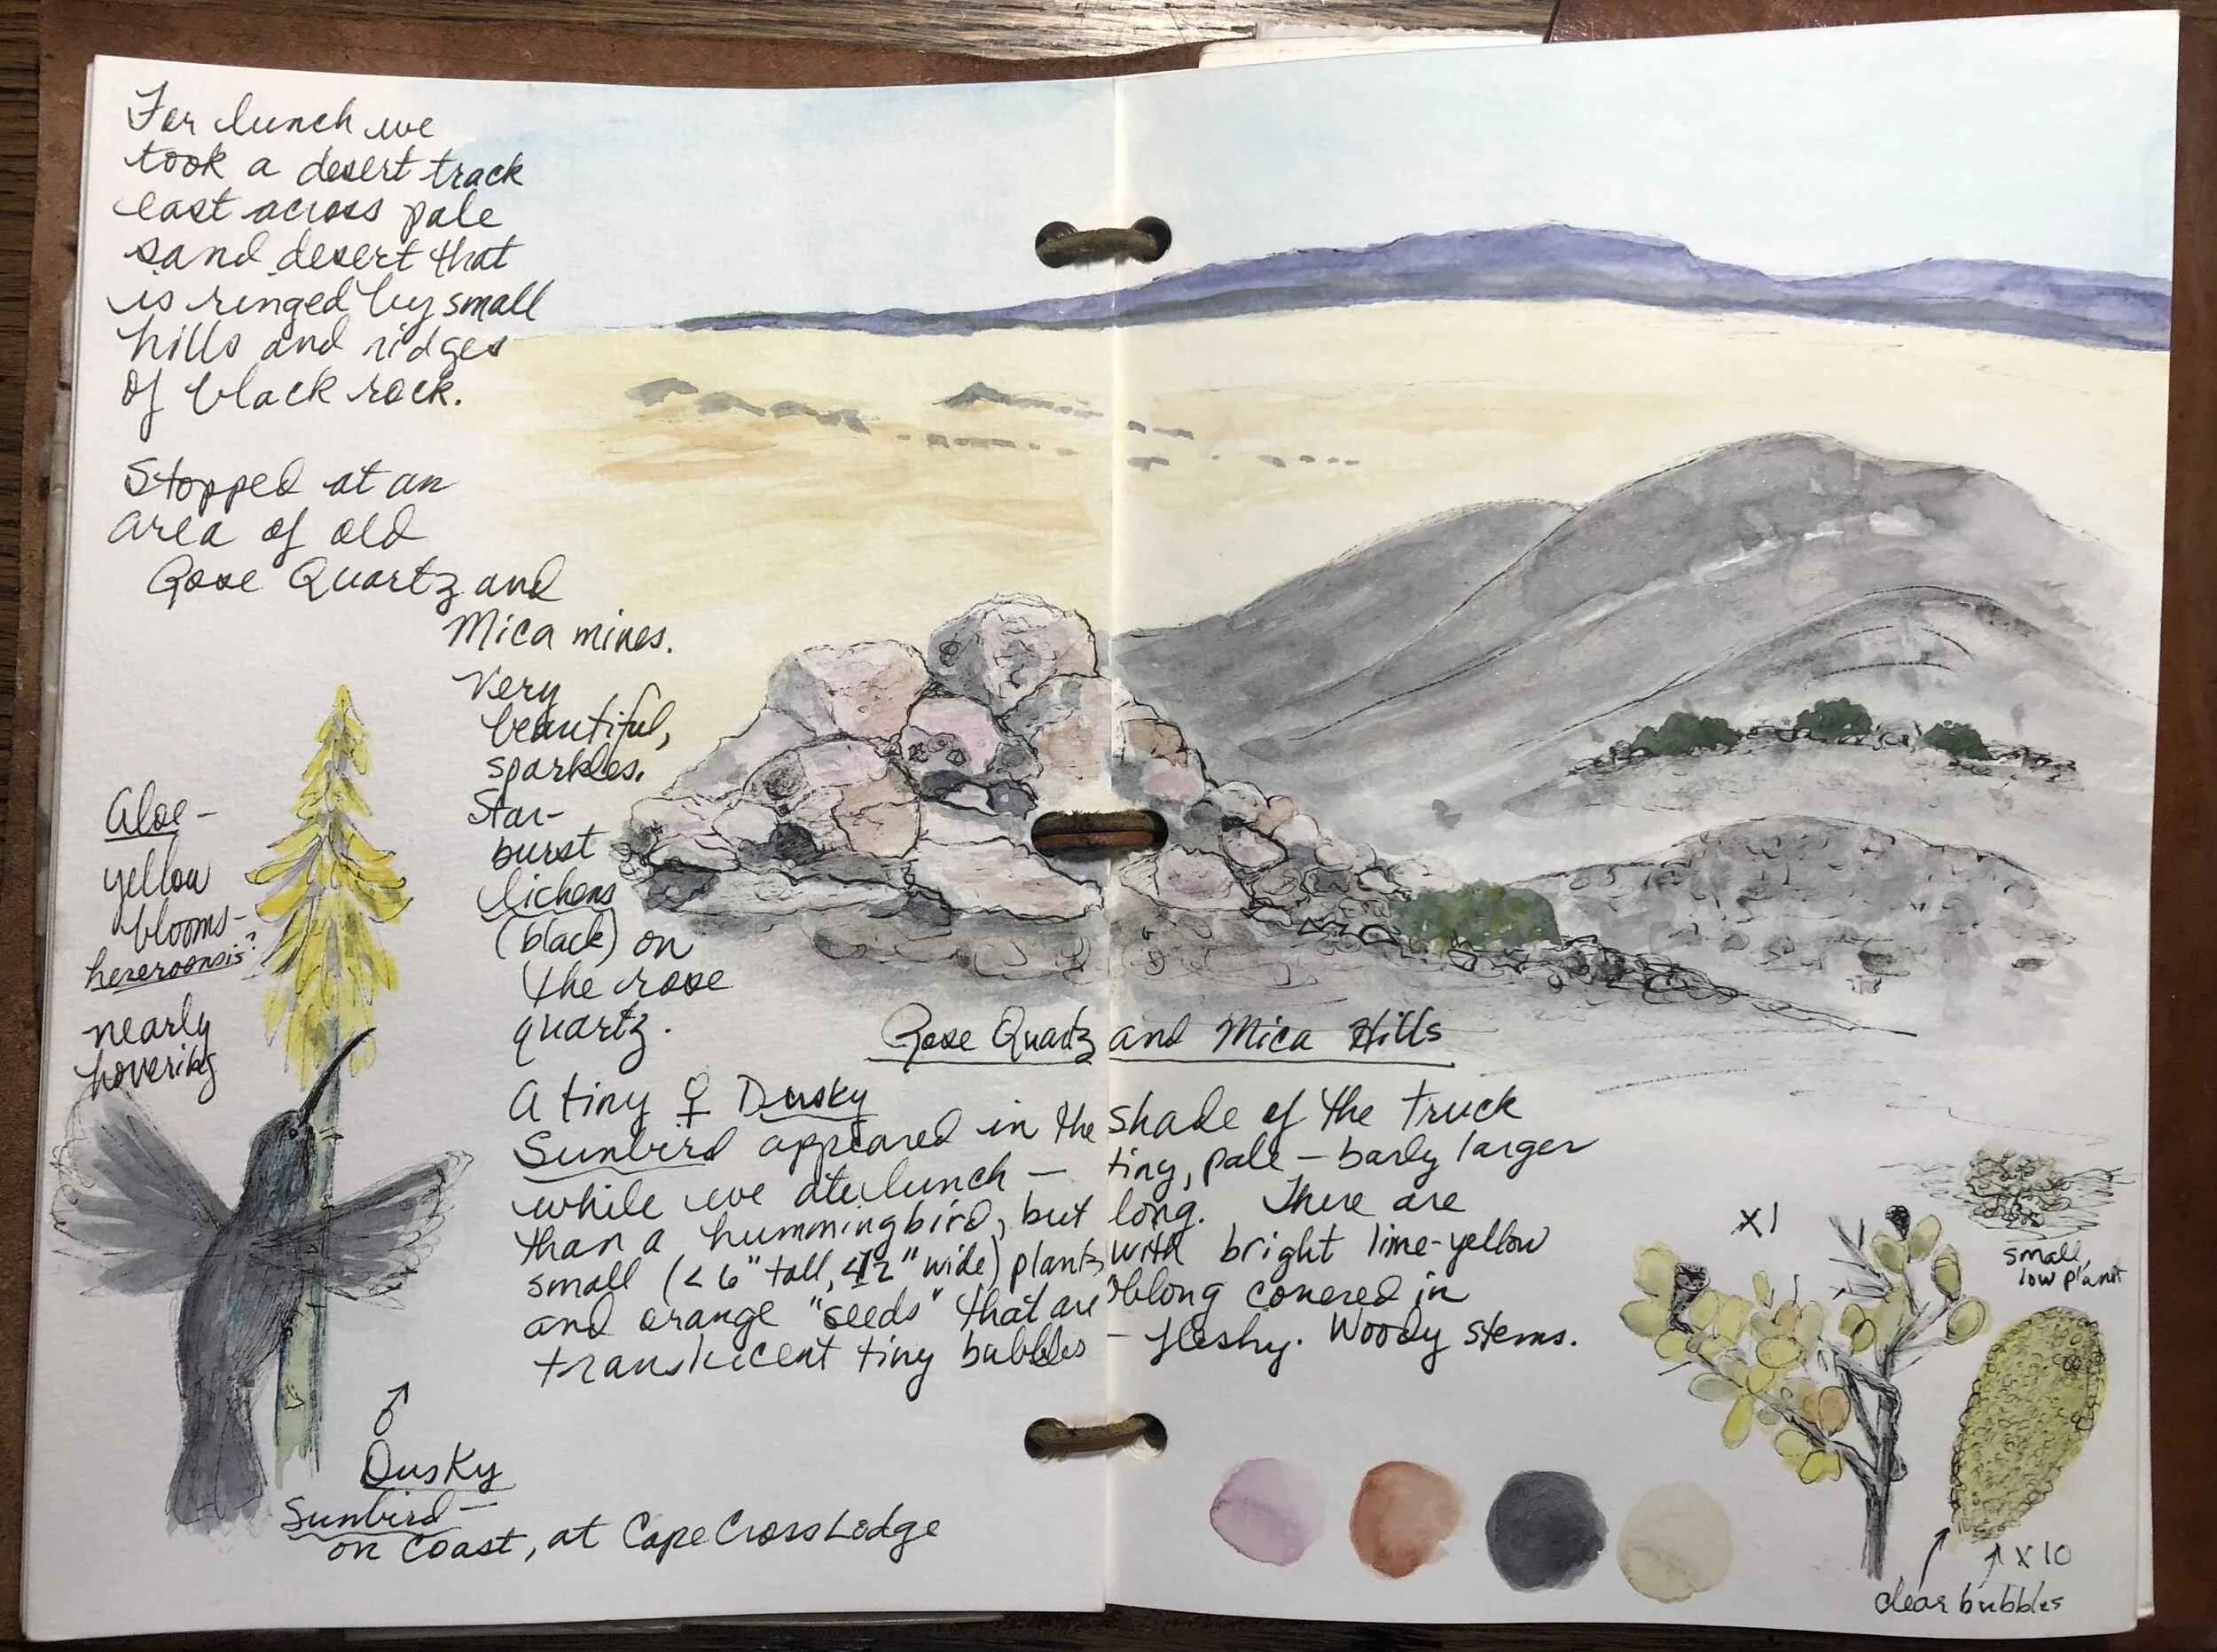 For lunch we
took a desert track
east across pale
sand desert that
is ringed by small
hills and ridges
of black rock.
Stopped at an
area of old
Rose Quartz and
Mica mines.
Very
beautiful,
sparkles.
Star-
burst
lichens
(black) on
the rose
quartz.
Aloe-
yellow
blooms-
hereroensis?
nearly
hovering
Rose Quartz and Mica Hills
A tiny ♀ Dusky
Sunbird appeared in the shade of the truck
while we ate lunch — tiny, pale - barly larger
than a hummingbird, but long. There are
small (<6" tall, <12" wide) plants with bright lime-yellow
and orange "seeds" that are oblong covered in
translucent tiny bubbles - fleshy. Woody stems.
♂
Dusky
Sunbird —
on coast, at Cape Cross Lodge
x1
small,
low plant
x10
clear bubbles